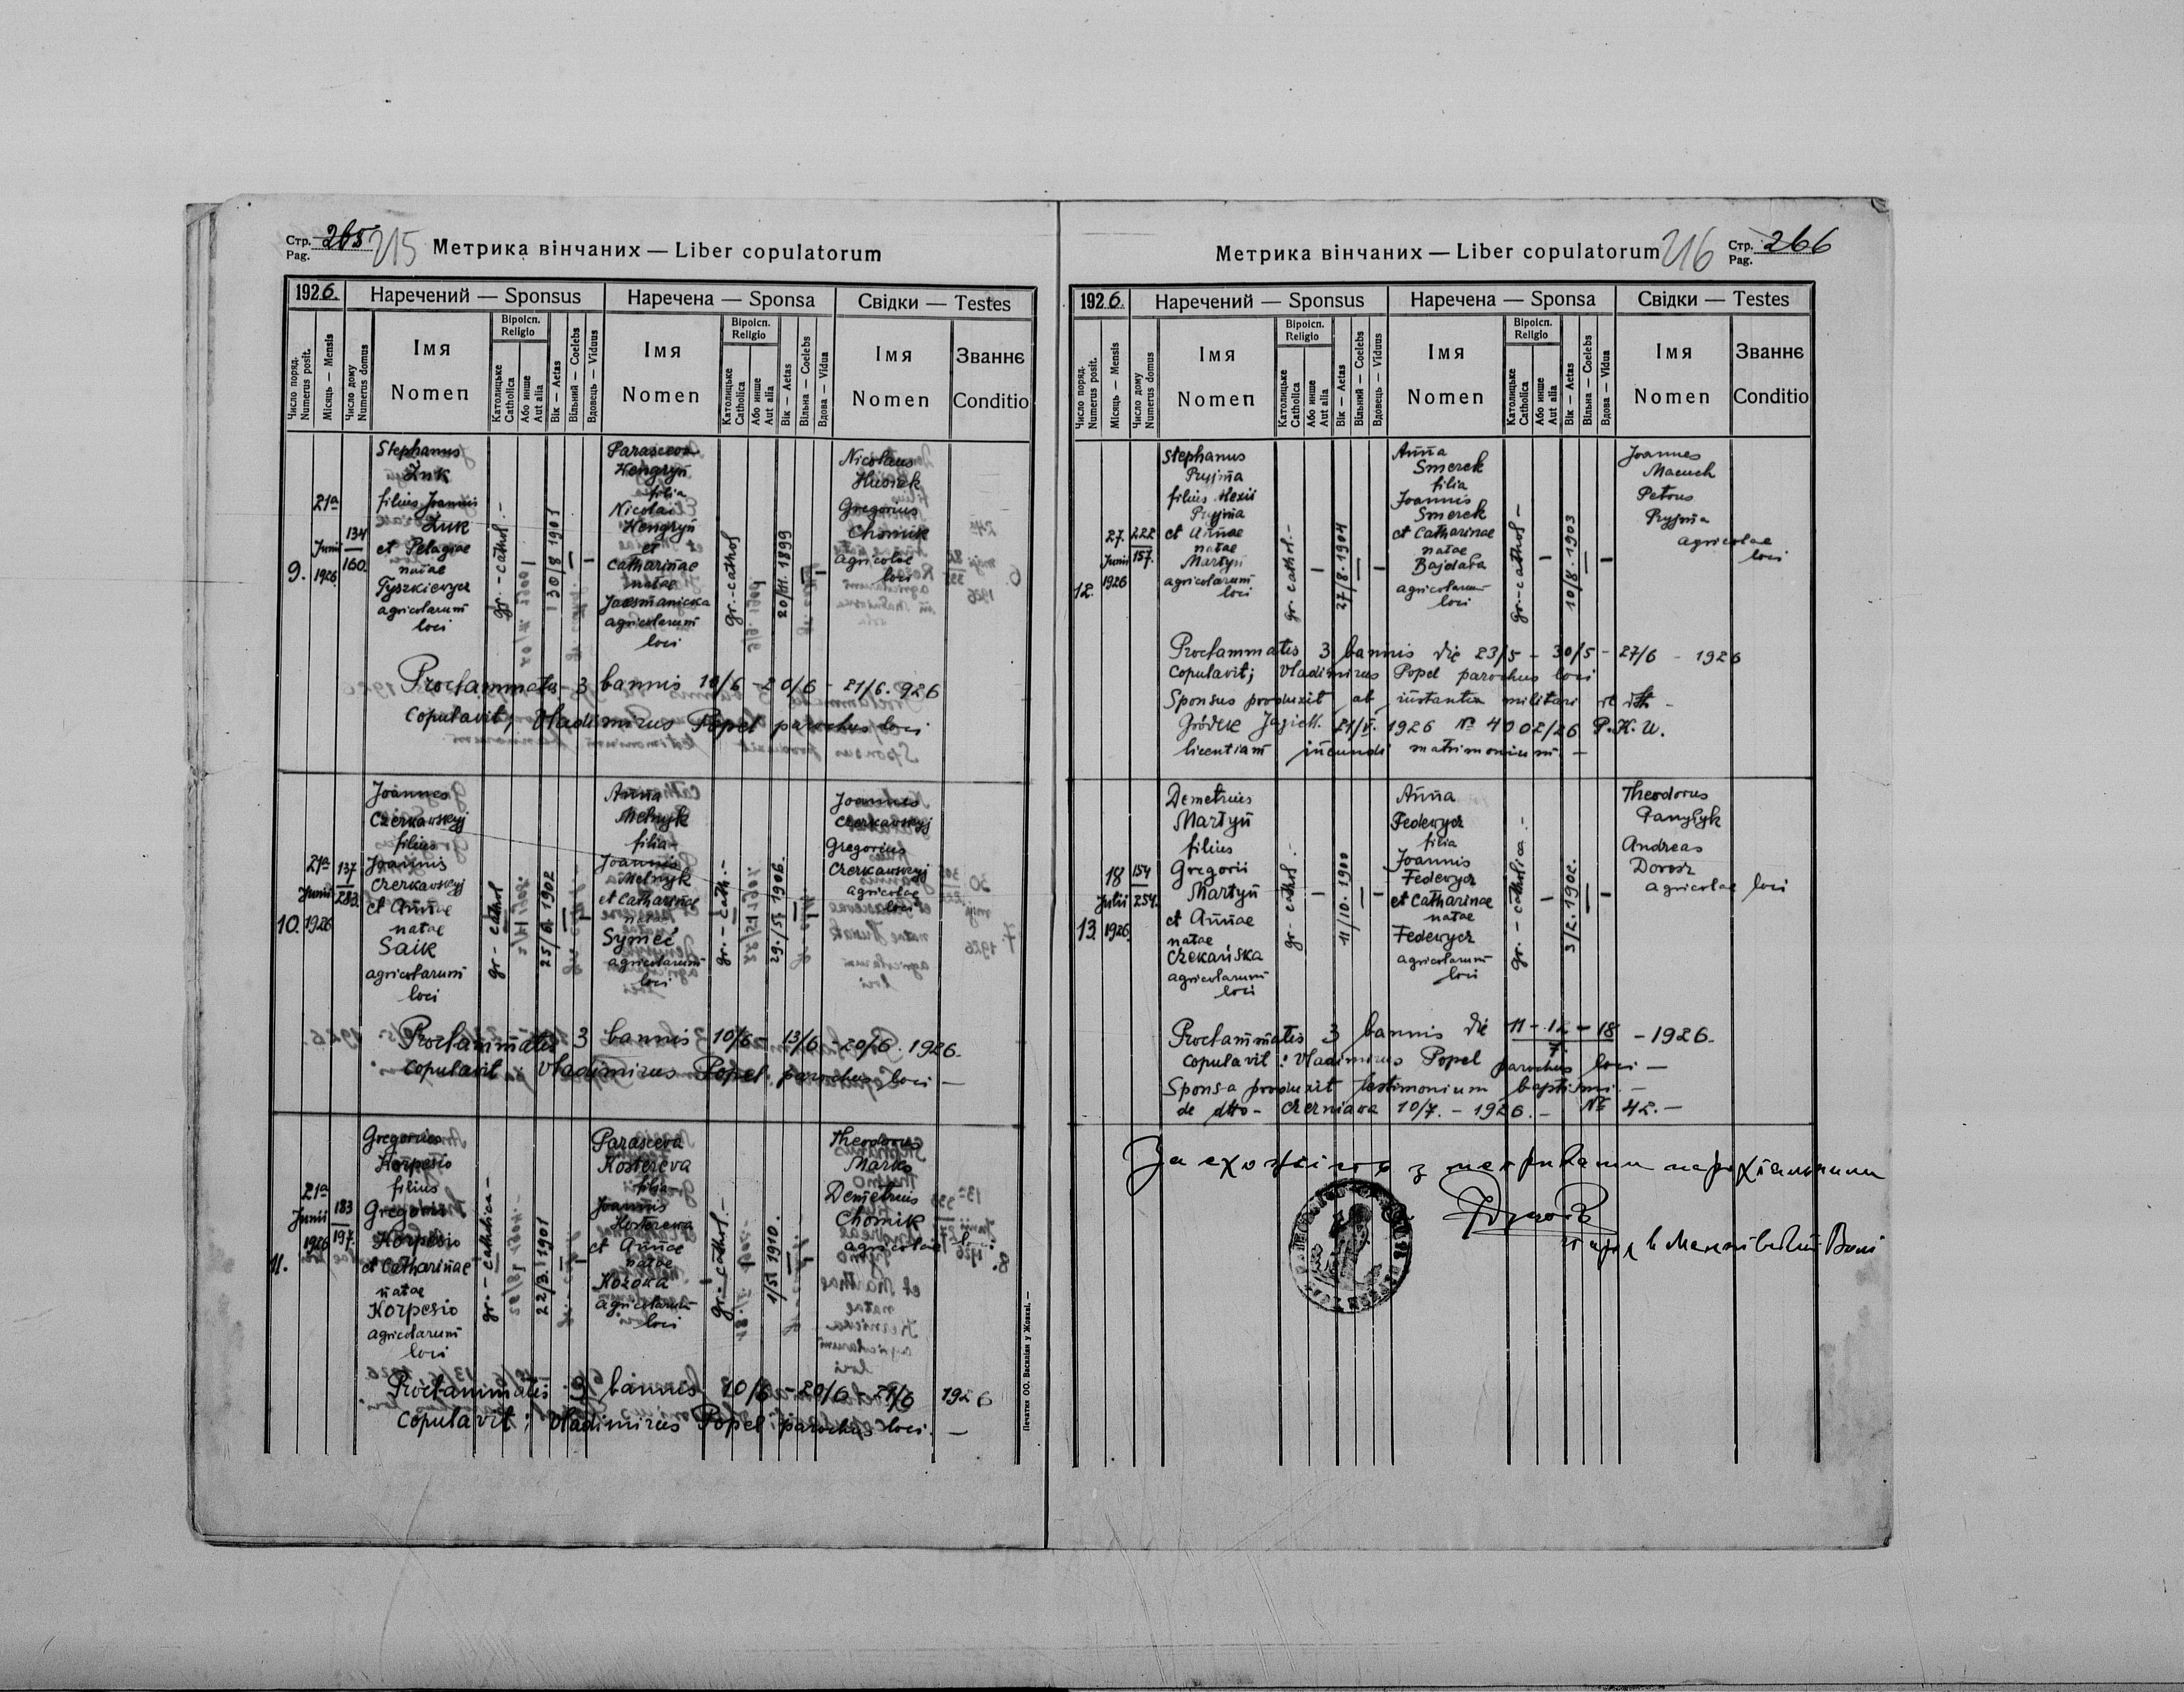 Стр. Pag. 265 215
Метрика вінчаних — Liber copulatorum
1926.
Наречений — Sponsus
Наречена — Sponsa
Свідки — Testes
Число поряд. Numerus posit.
Місяць — Mensis
Число дому Numerus domus
Імя Nomen
Віроісп. Religio
Католицьке Catholica
Або инше Aut alia
Вік — Aetas
Вільний — Coelebs
Вдовець — Viduus
Імя Nomen
Віроісп. Religio
Католицьке Catholica
Або инше Aut alia
Вік — Aetas
Вільна — Coelebs
Вдова — Vidua
Імя Nomen
Званнє Conditio
9.
21a
Junii
1926
134
160.
Stephanus
Żuk
filius Joannis
Żuk
et Pelagiae
natae
Tyszkiewycz
agricolarum
loci
gr.-cathol.-
30/8 1901
Parasceva
Hengryn
filia
Nicolai
Hengryn
et
Catharinae
natae
agricolarum
loci
gr.-cathol
20/11. 1899
Nicolaus
Husiak
Gregorius
Chomik
agricolae
loci
Proclammatis 3 bannis 10/6 - 20/6 - 21/6. 926
copulavit; Vladimirus Popel parochus loci
10.
21a
Junii
1926
137
283.
Joannes
Czerkawskyj
filius
Joannis
Czerkawskyj
et Annae
natae
Saik
agricolarum
loci
gr-cathol
25/6. 1902
Anna
Melnyk
filia
Joannis
Melnyk
et Catharinae
natae
Symeć
agricolarum
loci
gr.-cath.-
29./5. 1906.
Joannes
Czerkawskyj
Gregorius
Czerkawskyj
agricolae
loci
Proclammatis 3 bannis 10/6 - 13/6 - 20/6. 1926.
copulavit: Vladimirus Popel parochus loci —
11.
21a
Junii
1926
183
197.
Gregorius
Korpesio
filius
Gregorii
Korpesio
et Catharinae
natae
Korpesio
agricolarum
loci
gr.-catholica-
22/3. 1901
Parasceva
Kostereva
filia
Joannis
Kosterewa
et Annae
natae
Koroka
agricolarum
loci
gr.-cathol.-
1/5 1910.
Theodorus
Marko
Demetrius
Chomik
agricolae
Proclammatis 3 bannis 10/6 - 20/6 - 21/6 1926
copulavit; Vladimirus Popel parochus loci. —
Печатня ОО. Василіян у Жовкві. —
Метрика вінчаних — Liber copulatorum
216 Стр. Pag. 266
1926.
Наречений — Sponsus
Наречена — Sponsa
Свідки — Testes
Число поряд. Numerus posit.
Місяць — Mensis
Число дому Numerus domus
Імя Nomen
Віроісп. Religio
Католицьке Catholica
Або инше Aut alia
Вік — Aetas
Вільний — Coelebs
Вдовець — Viduus
Імя Nomen
Віроісп. Religio
Католицьке Catholica
Або инше Aut alia
Вік — Aetas
Вільна — Coelebs
Вдова — Vidua
Імя Nomen
Званнє Conditio
12.
27.
Junii
1926
222
157.
Stephanus
Pryjma
filius Alexii
Pryjma
et Annae
natae
Martyn
agricolarum
loci
gr. cathol.-
27/8. 1904
Anna
Smerek
filia
Joannis
Smerek
et Catharinae
natae
Bajdała
agricolarum
loci
gr.-cathol-
10/8. 1903
Joannes
Macuch
Petrus
Pryjma
agricolae
loci
Proclammatis 3 bannis die 23/5 - 30/5 - 27/6 - 1926
copulavit; Vladimirus Popel parochus loci
Sponsus produxit ab instantia militari de dtto -
Gródek Jagiell. 21/5. 1926 № 4002/26 P.K.U.
licentiam ineundi matrimonium. —
13.
18
Julii
1926.
154
254.
Demetrius
Martyn
filius
Gregorii
Martyn
et Annae
natae
Czekańska
agricolarum
loci
gr-cathol.-
11/10. 1900
Anna
Fedewycz
filia
Joannis
Fedewycz
et Catharinae
natae
Fedewycz
agricolarum
loci
gr.-catholica.-
3/2. 1902.
Theodorus
Panylyk
Andreas
agricolae loci
Proclammatis 3 bannis die 11 - 12 - 18 / 7. - 1926.
copulavit: Vladimirus Popel parochus loci —
Sponsa produxit testimonium baptismi. —
de dtto - Czerniawa 10/7. - 1926. - № 42. —
За схожість з метриками парохіяльними